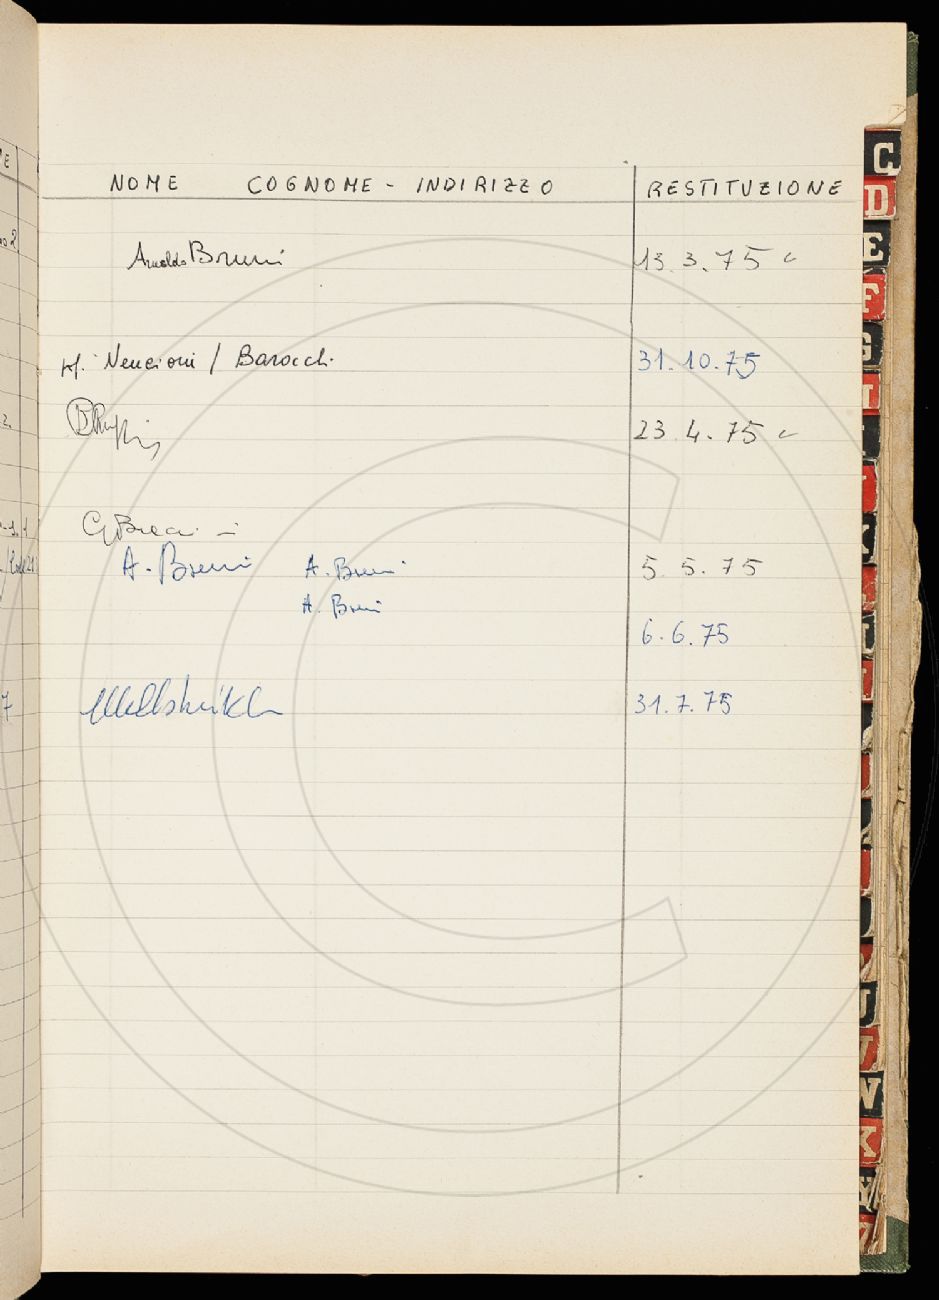 NOME COGNOME - INDIRIZZO RESTITUZIONE
Arnoldo Bruni 13.3.75
Nencioni / Barocchi 31.10.75
23.4.75
A. Bruni A. Bruni 5.5.75
A. Bruni
6.6.75
31.7.75
C
D
E
F
G
H
I
K
L
M
N
U
V
W
X
Y
Z